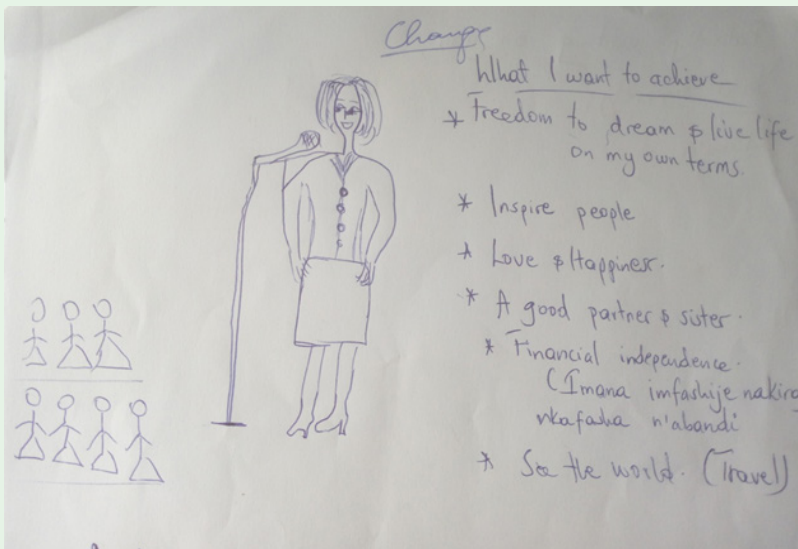 Change
What I want to achieve
* Freedom to dream & live life
on my own terms.
* Inspire people
* Love & Happiness.
* A good partner & sister.
* Financial independence.
(Imana imfashije nakira
nkafasha n'abandi
* See the world. (Travel)